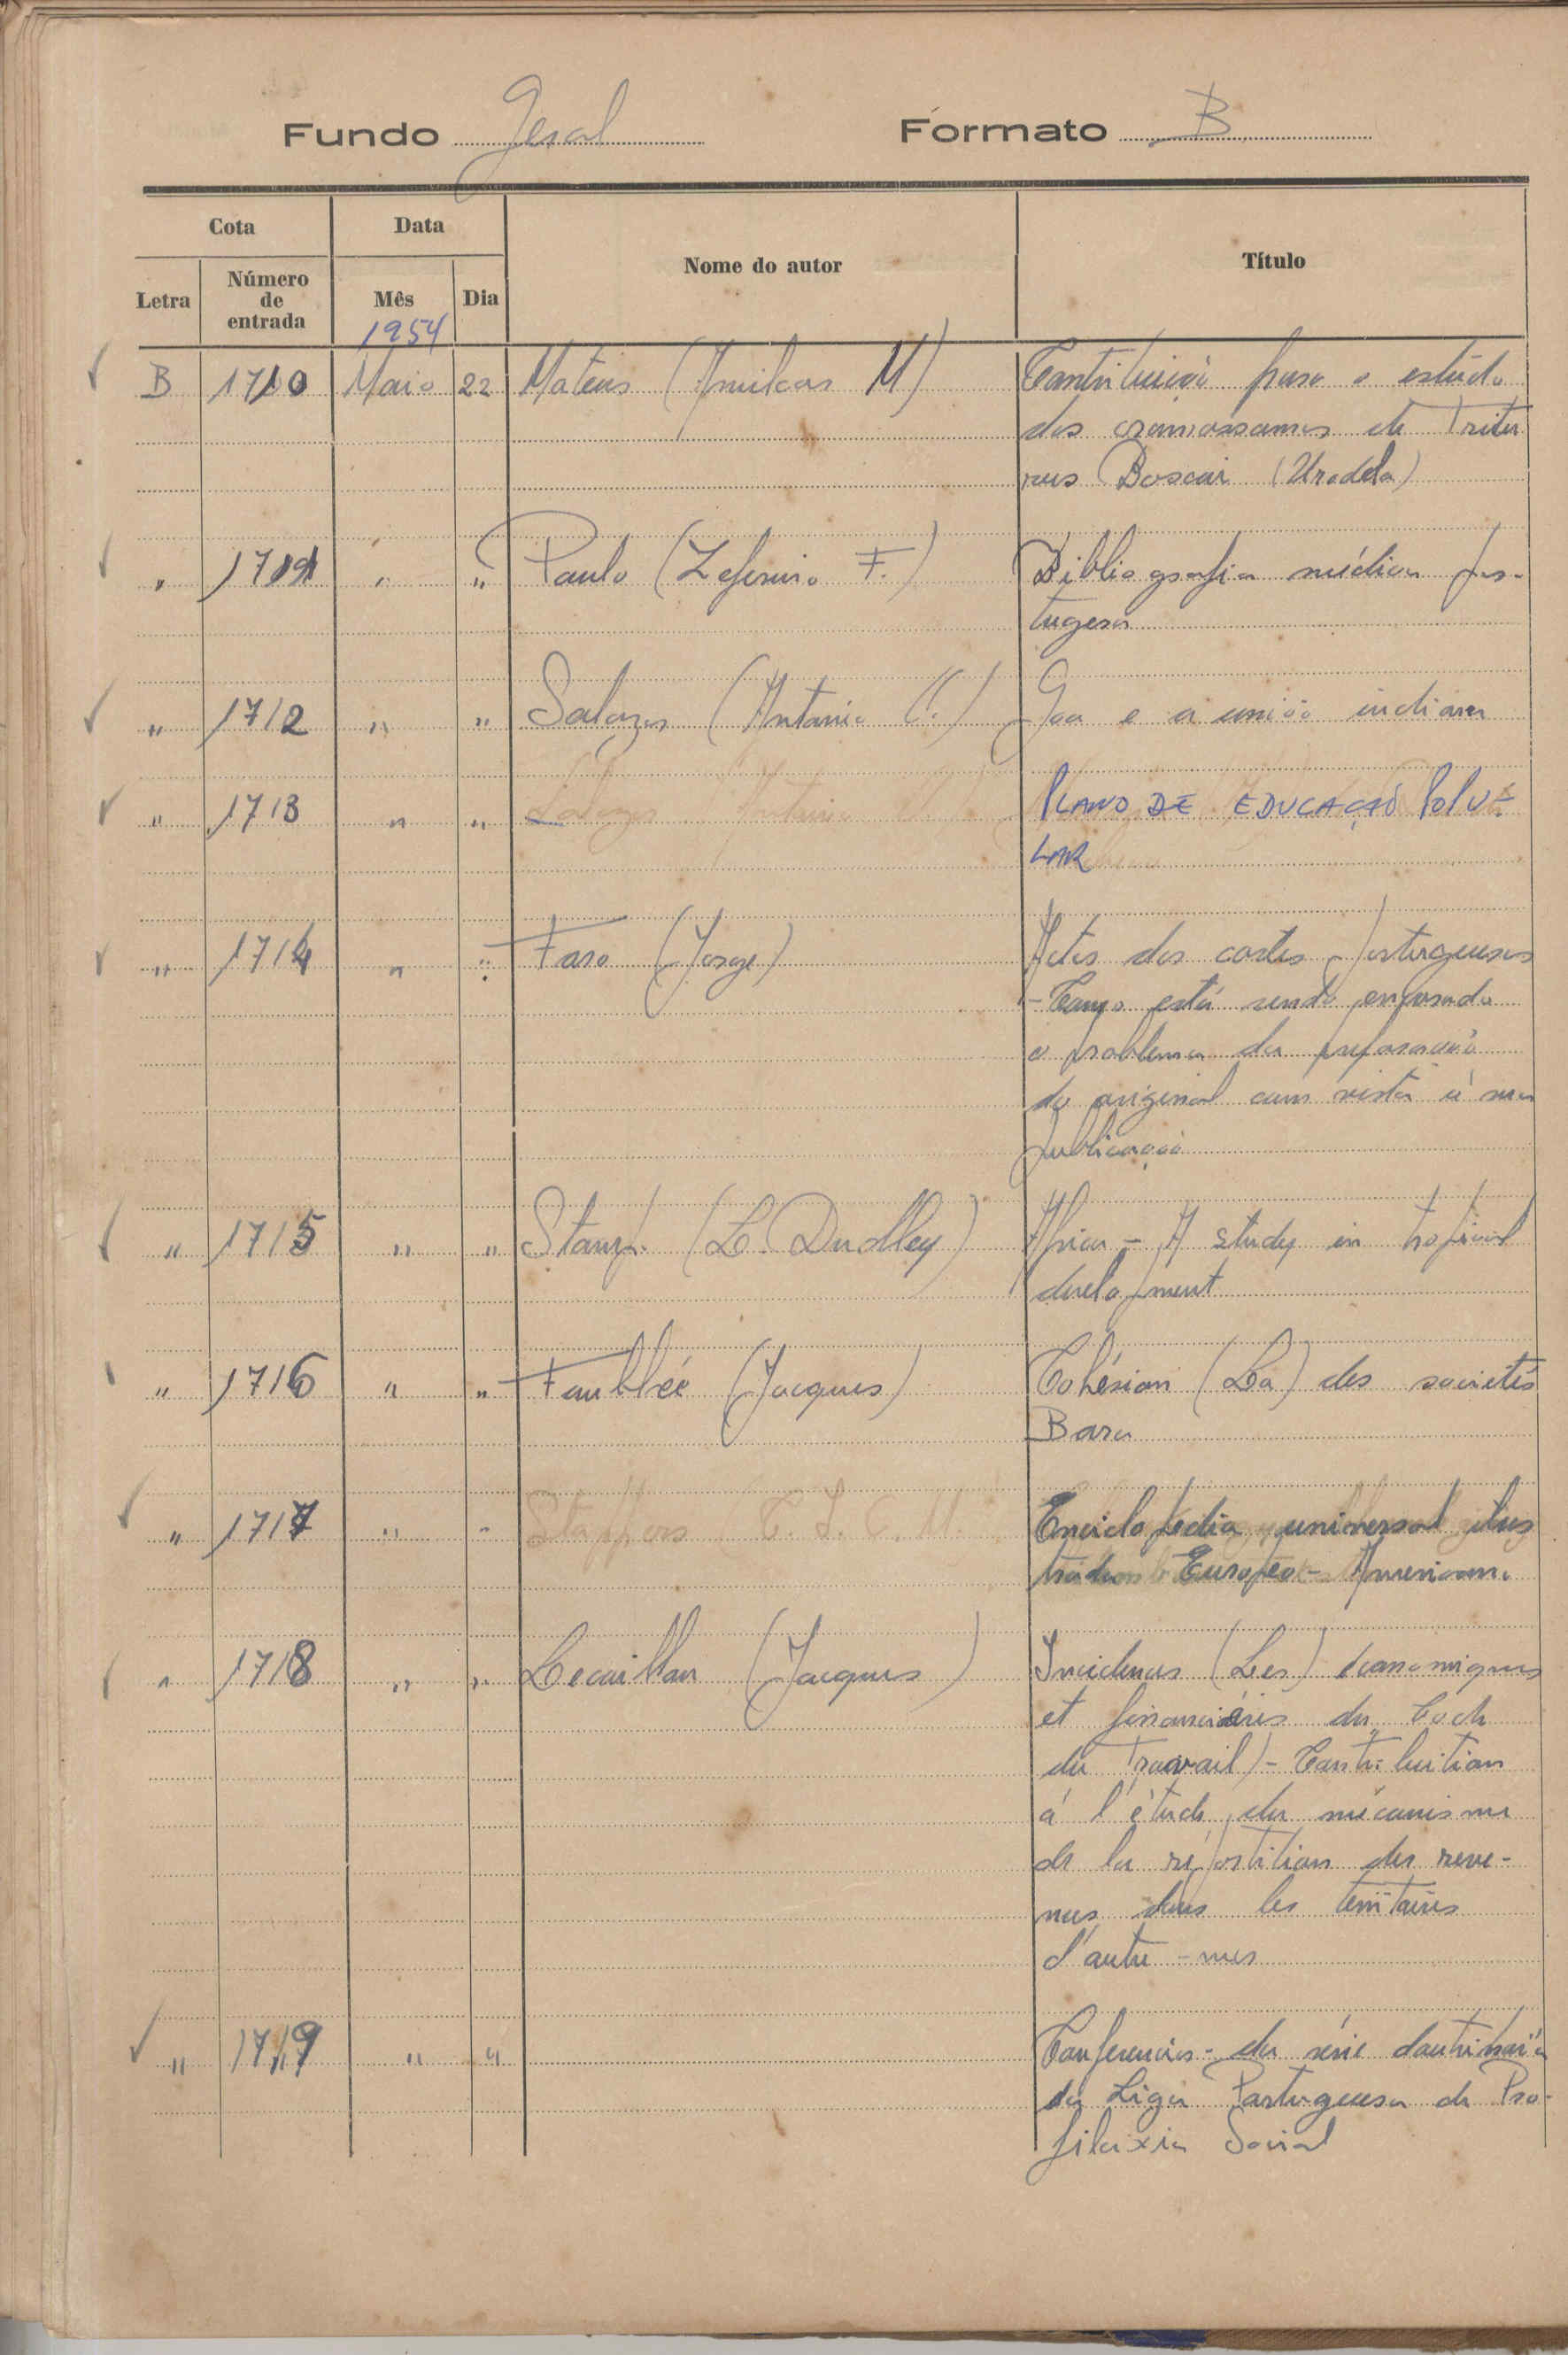 Fundo Geral Formato B
Cota Data Nome do autor Título
Letra Número de entrada Mês Dia
1954
B 1710 Maio 22 Mateus (Amilcar M) Contribuição para o estudo
dos cromossomas de Tritu
rus Boscai (Urodela)
" 1711 " " Paulo (Zeferino F.) Bibliografia médica por-
tugesa
" 1712 " " Salazar (Antonio O.) Goa e a união indiana
" 1713 " " Salazar Antonio O. PLANO DE EDUCAÇÃO POPU-
LAR
" 1714 " " Faro (Jorge) Actas das cortes portuguesas
- Como está sendo encarado
o problema da preparação
do original com vista á sua
publicação
" 1715 " " Stamp. (L. Dudley) Africa - A study in tropical
development
" 1716 " " Faublée (Jacques) Cohésion (La) des societés
Bara
" 1717 " " Enciclopédia universal ilus
trada Europeo - Americana
" 1718 " " Lecaillon (Jacques) Incidences (Les) économiques
et financiéres du Code
du Travail) - Contribuition
á l'étude du mécanisme
de la répartition des reve-
nus dans les territoires
d'outre-mer
" 1719 " " Conferencias - da série doutrinária
da Liga Portuguesa de Pro-
filaxia Social